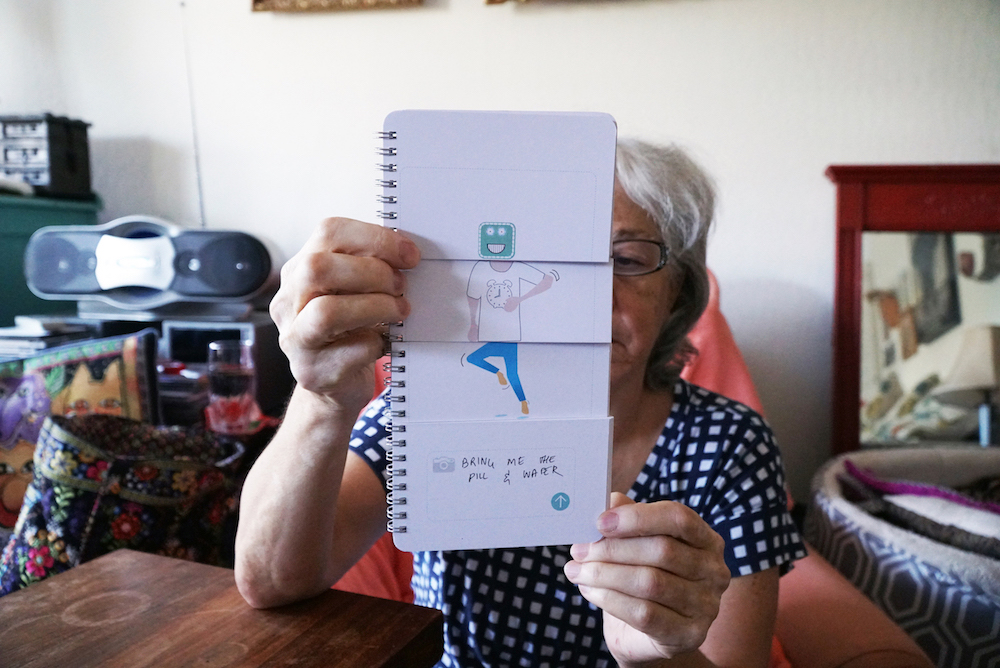 BRING ME THE
PILL & WATER